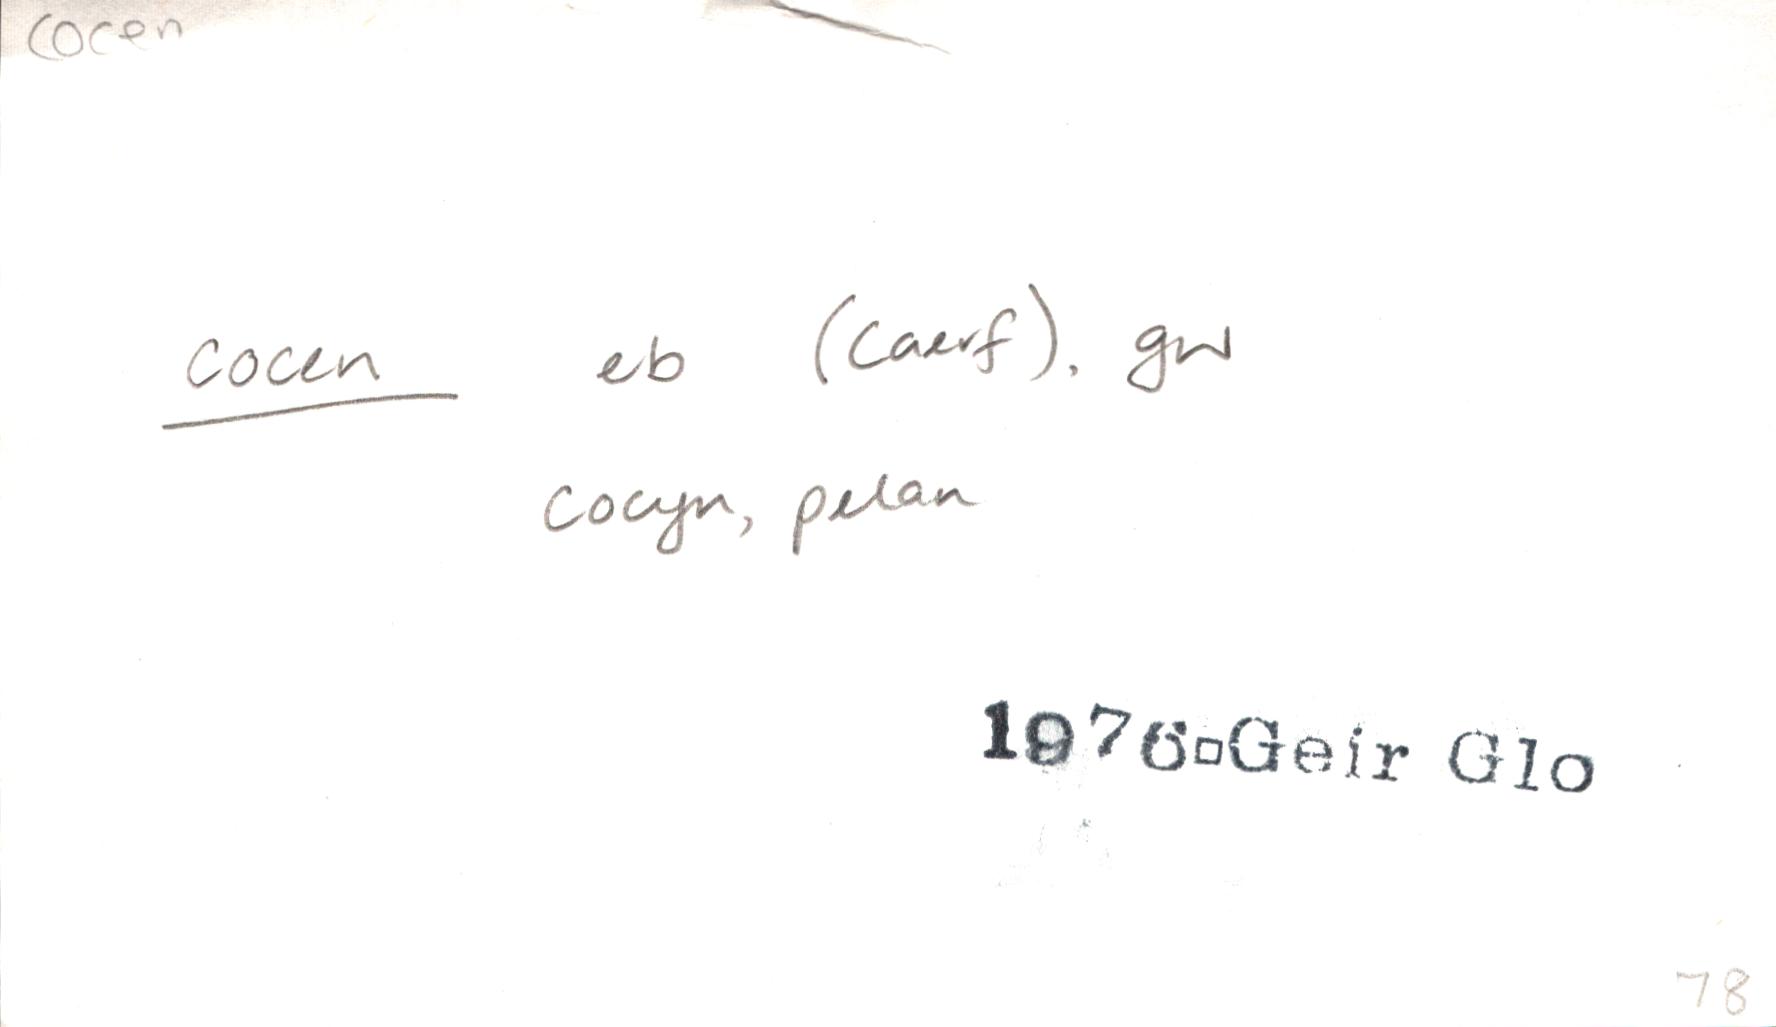 cocen
cocen eb (Caerf). gw
cocyn, pelan
1976▫Geir Glo
78